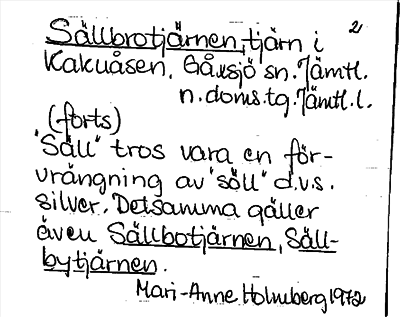 2
Sällbrotjärnen, tjärn i
Kakuåsen, Gåxsjö sn. Jämtl.
n. doms. tg. Jämtl. l.
(forts)
"Säll" tros vara en för-
vrängning av "söll" d.v.s.
silver. Detsamma gäller
även Sällbotjärnen, Säll-
bytjärnen.
Mari-Anne Holmberg 1972